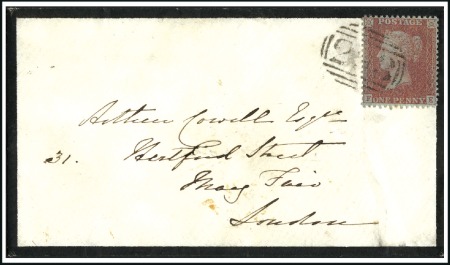 POSTAGE
ONE PENNY
Arthur Cowell Esqre
31. Hertford Street
May Fair
London